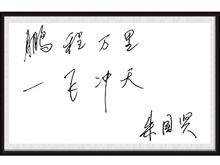 鹏程万里
一飞冲天
朱国兴